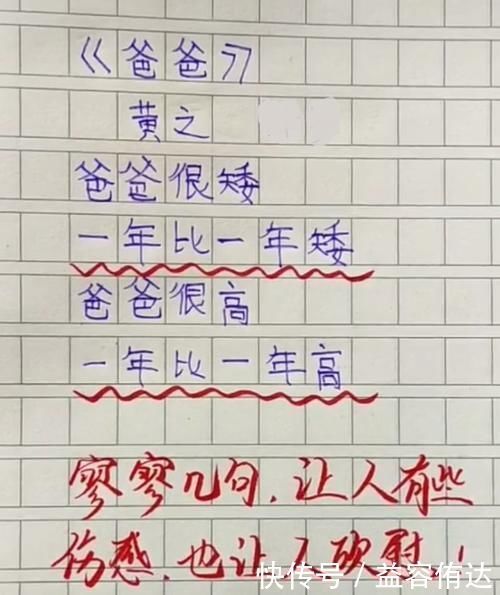 《爸爸》
黄之
爸爸很矮
一年比一年矮
爸爸很高
一年比一年高
寥寥几句,让人有些
伤感,也让人欣慰!
快传号/益容侑达